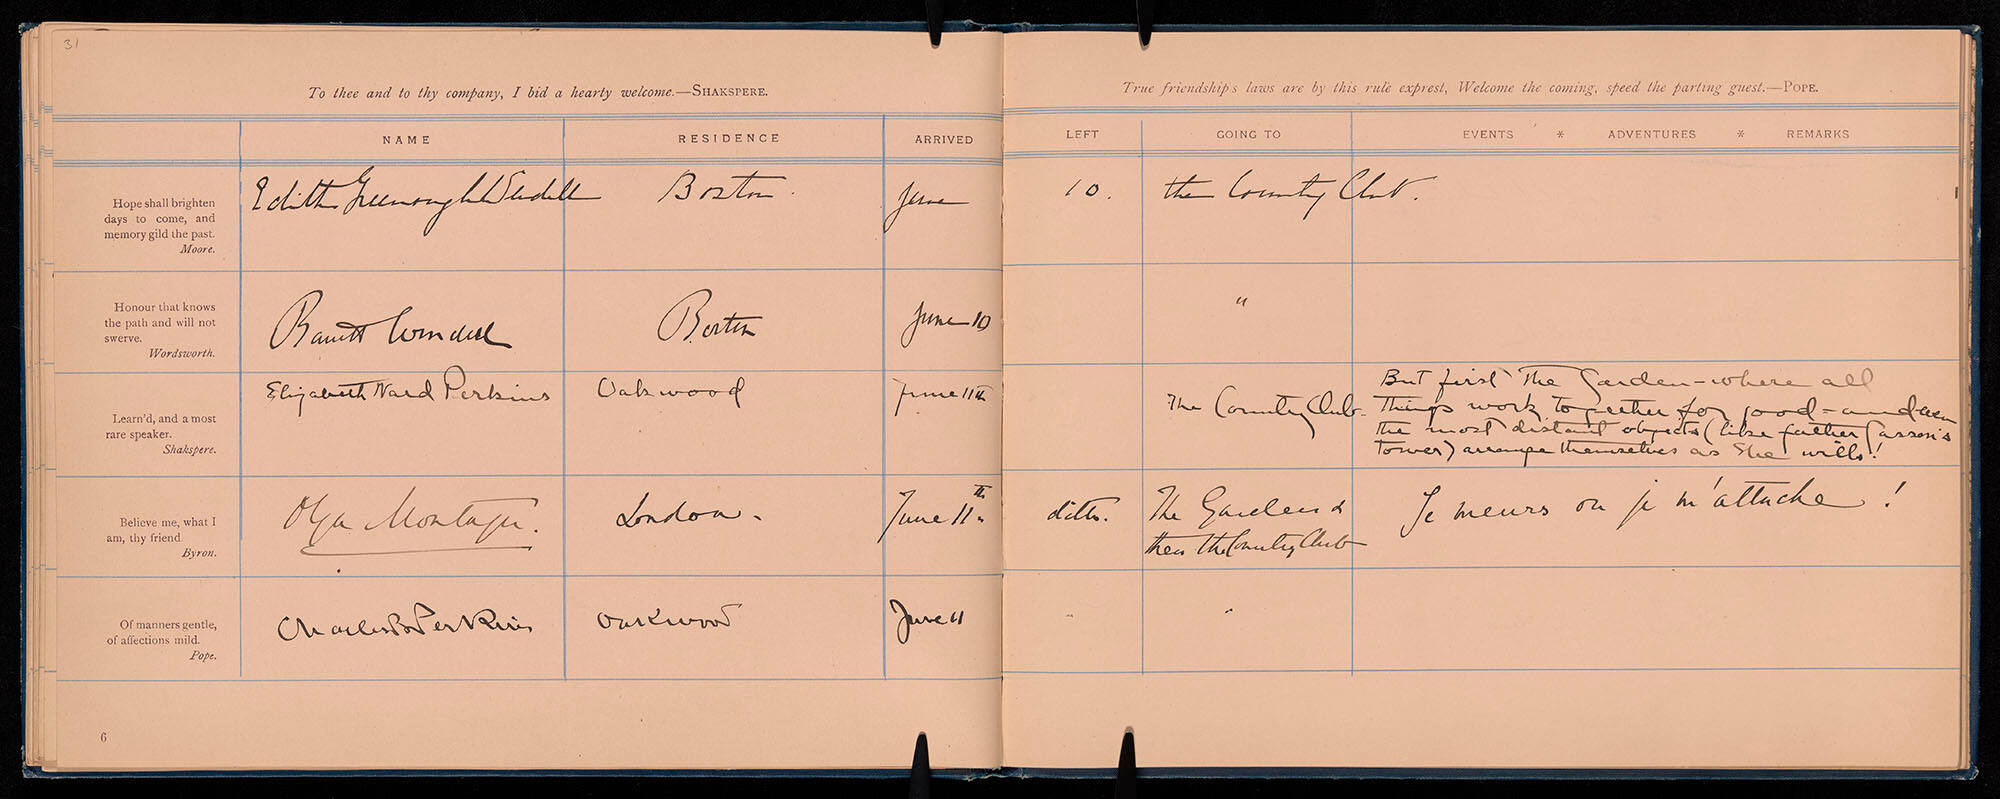 31
To thee and to thy company, I bid a hearty welcome.—SHAKSPERE.
True friendship's laws are by this rule exprest, Welcome the coming, speed the parting guest.—POPE.
NAME RESIDENCE ARRIVED LEFT GOING TO EVENTS * ADVENTURES * REMARKS
Hope shall brighten
days to come, and
memory gild the past.
Moore.
Edith Greenough Wendell Boston. June 10. the Country Club.
Honour that knows
the path and will not
swerve.
Wordsworth.
Barrett Wendell Boston June 10 "
Learn'd, and a most
rare speaker.
Shakspere.
Elizabeth Ward Perkins Oakwood June 11th The Country Club.
But first The Garden—where all
Things work together for good—and even
the most distant objects (like father Gasson's
Tower) arrange themselves as she wills!
Believe me, what I
am, thy friend.
Byron.
Olga Montagu. London. June 11th ditto. The Garden &
then the Country Club
Je meurs ou je m'attache!
Of manners gentle,
of affections mild.
Pope.
Charles B Perkins Oakwood June 11 " "
6